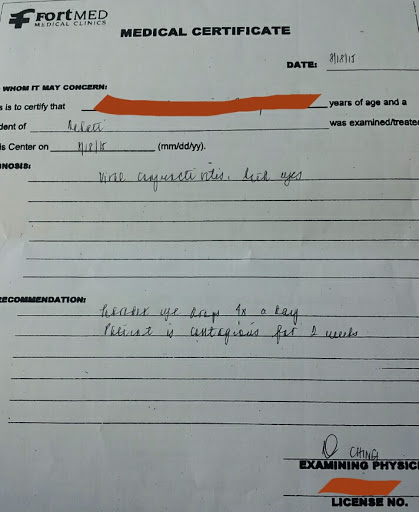 FORTMED
MEDICAL CLINICS
MEDICAL CERTIFICATE
DATE: 8/18/15
WHOM IT MAY CONCERN:
s is to certify that years of age and a
dent of was examined/treate
is Center on 8/18/15 (mm/dd/yy).
NOSIS:
Viral conjunctivitis, both eyes
RECOMMENDATION:
eye drops 4x a day
Patient is contagious for 2 weeks
CHING
EXAMINING PHYSIC
LICENSE NO.